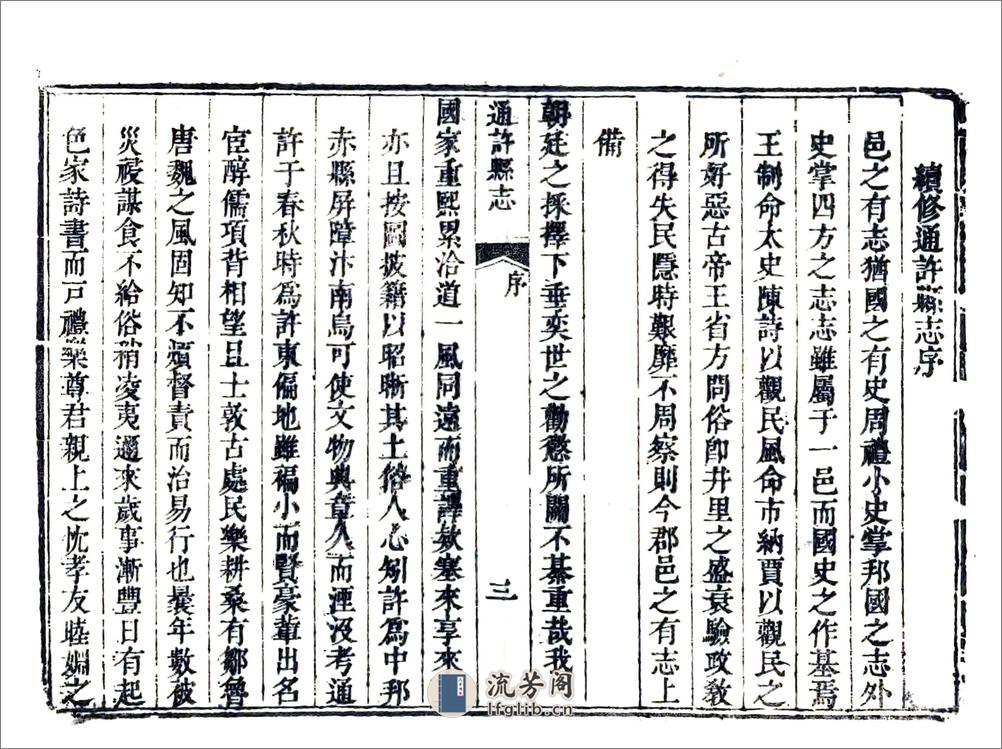 續修通許縣志序
邑之有志猶國之有史周禮小史掌邦國之志外
史掌四方之志志雖屬于一邑而國史之作基焉
王制命太史陳詩以觀民風命市納賈以觀民之
所好惡古帝王省方問俗卽井里之盛衰驗政敎
之得失民隱時艱靡不周察則今郡邑之有志上
備
朝廷之採擇下垂奕世之勸懲所關不綦重哉我
通許縣志
序
三
國家重熙累洽道一風同遠而重譯欸塞來享來
亦且按圖披籍以昭晰其土俗人心矧許爲中邦
赤縣屏障汴南烏可使文物典章久而湮沒考通
許于春秋時爲許東偏地雖褊小而賢豪輩出名
宦醇儒項背相望且士敦古處民樂耕桑有鄒魯
唐魏之風固知不煩督責而治易行也曩年數被
災祲謀食不給俗稍凌夷邇來歲事漸豐日有起
色家詩書而戸禮樂尊君親上之忱孝友睦婣之
流芳阁
lfglib.cn